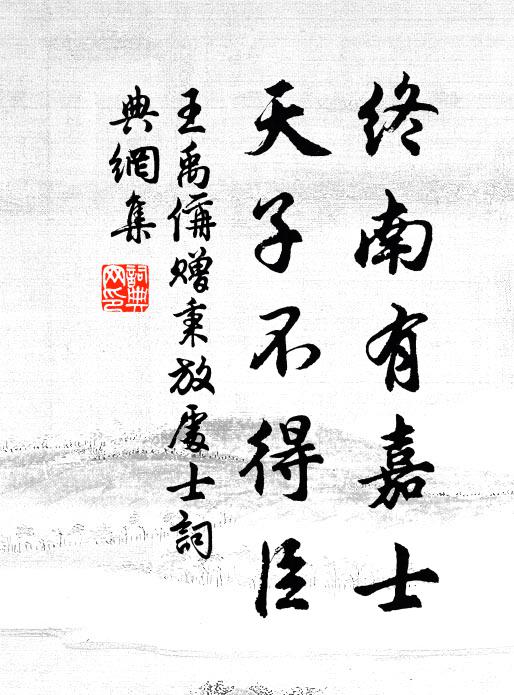 終南有嘉士
天子不得臣
王禹偁贈秉放處士詞
典網集
詞典網印